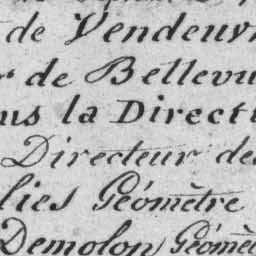 de Vendeuv
de Bellevu
us la Direct
Directeur de
lies Géomètre
Demolon Géomè